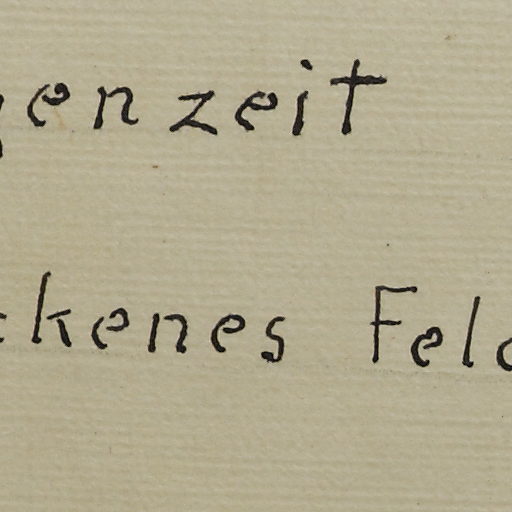 genzeit
ckenes Feld